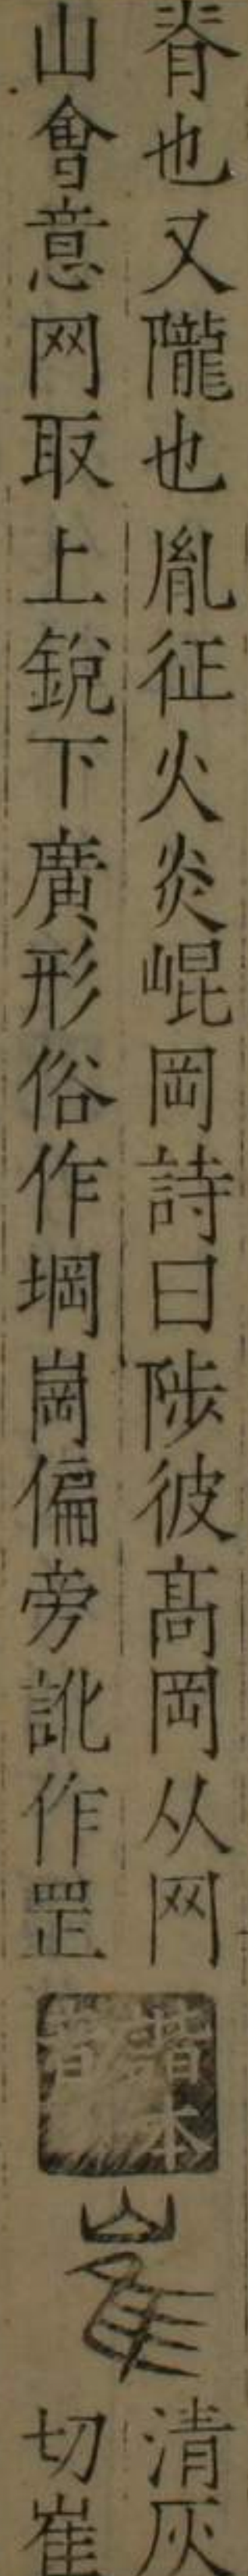 脊也又隴也胤征火炎崐岡詩曰陟彼髙岡从网
山會意网取上銳下廣形俗作堈崗偏旁訛作罡
清灰
切崔